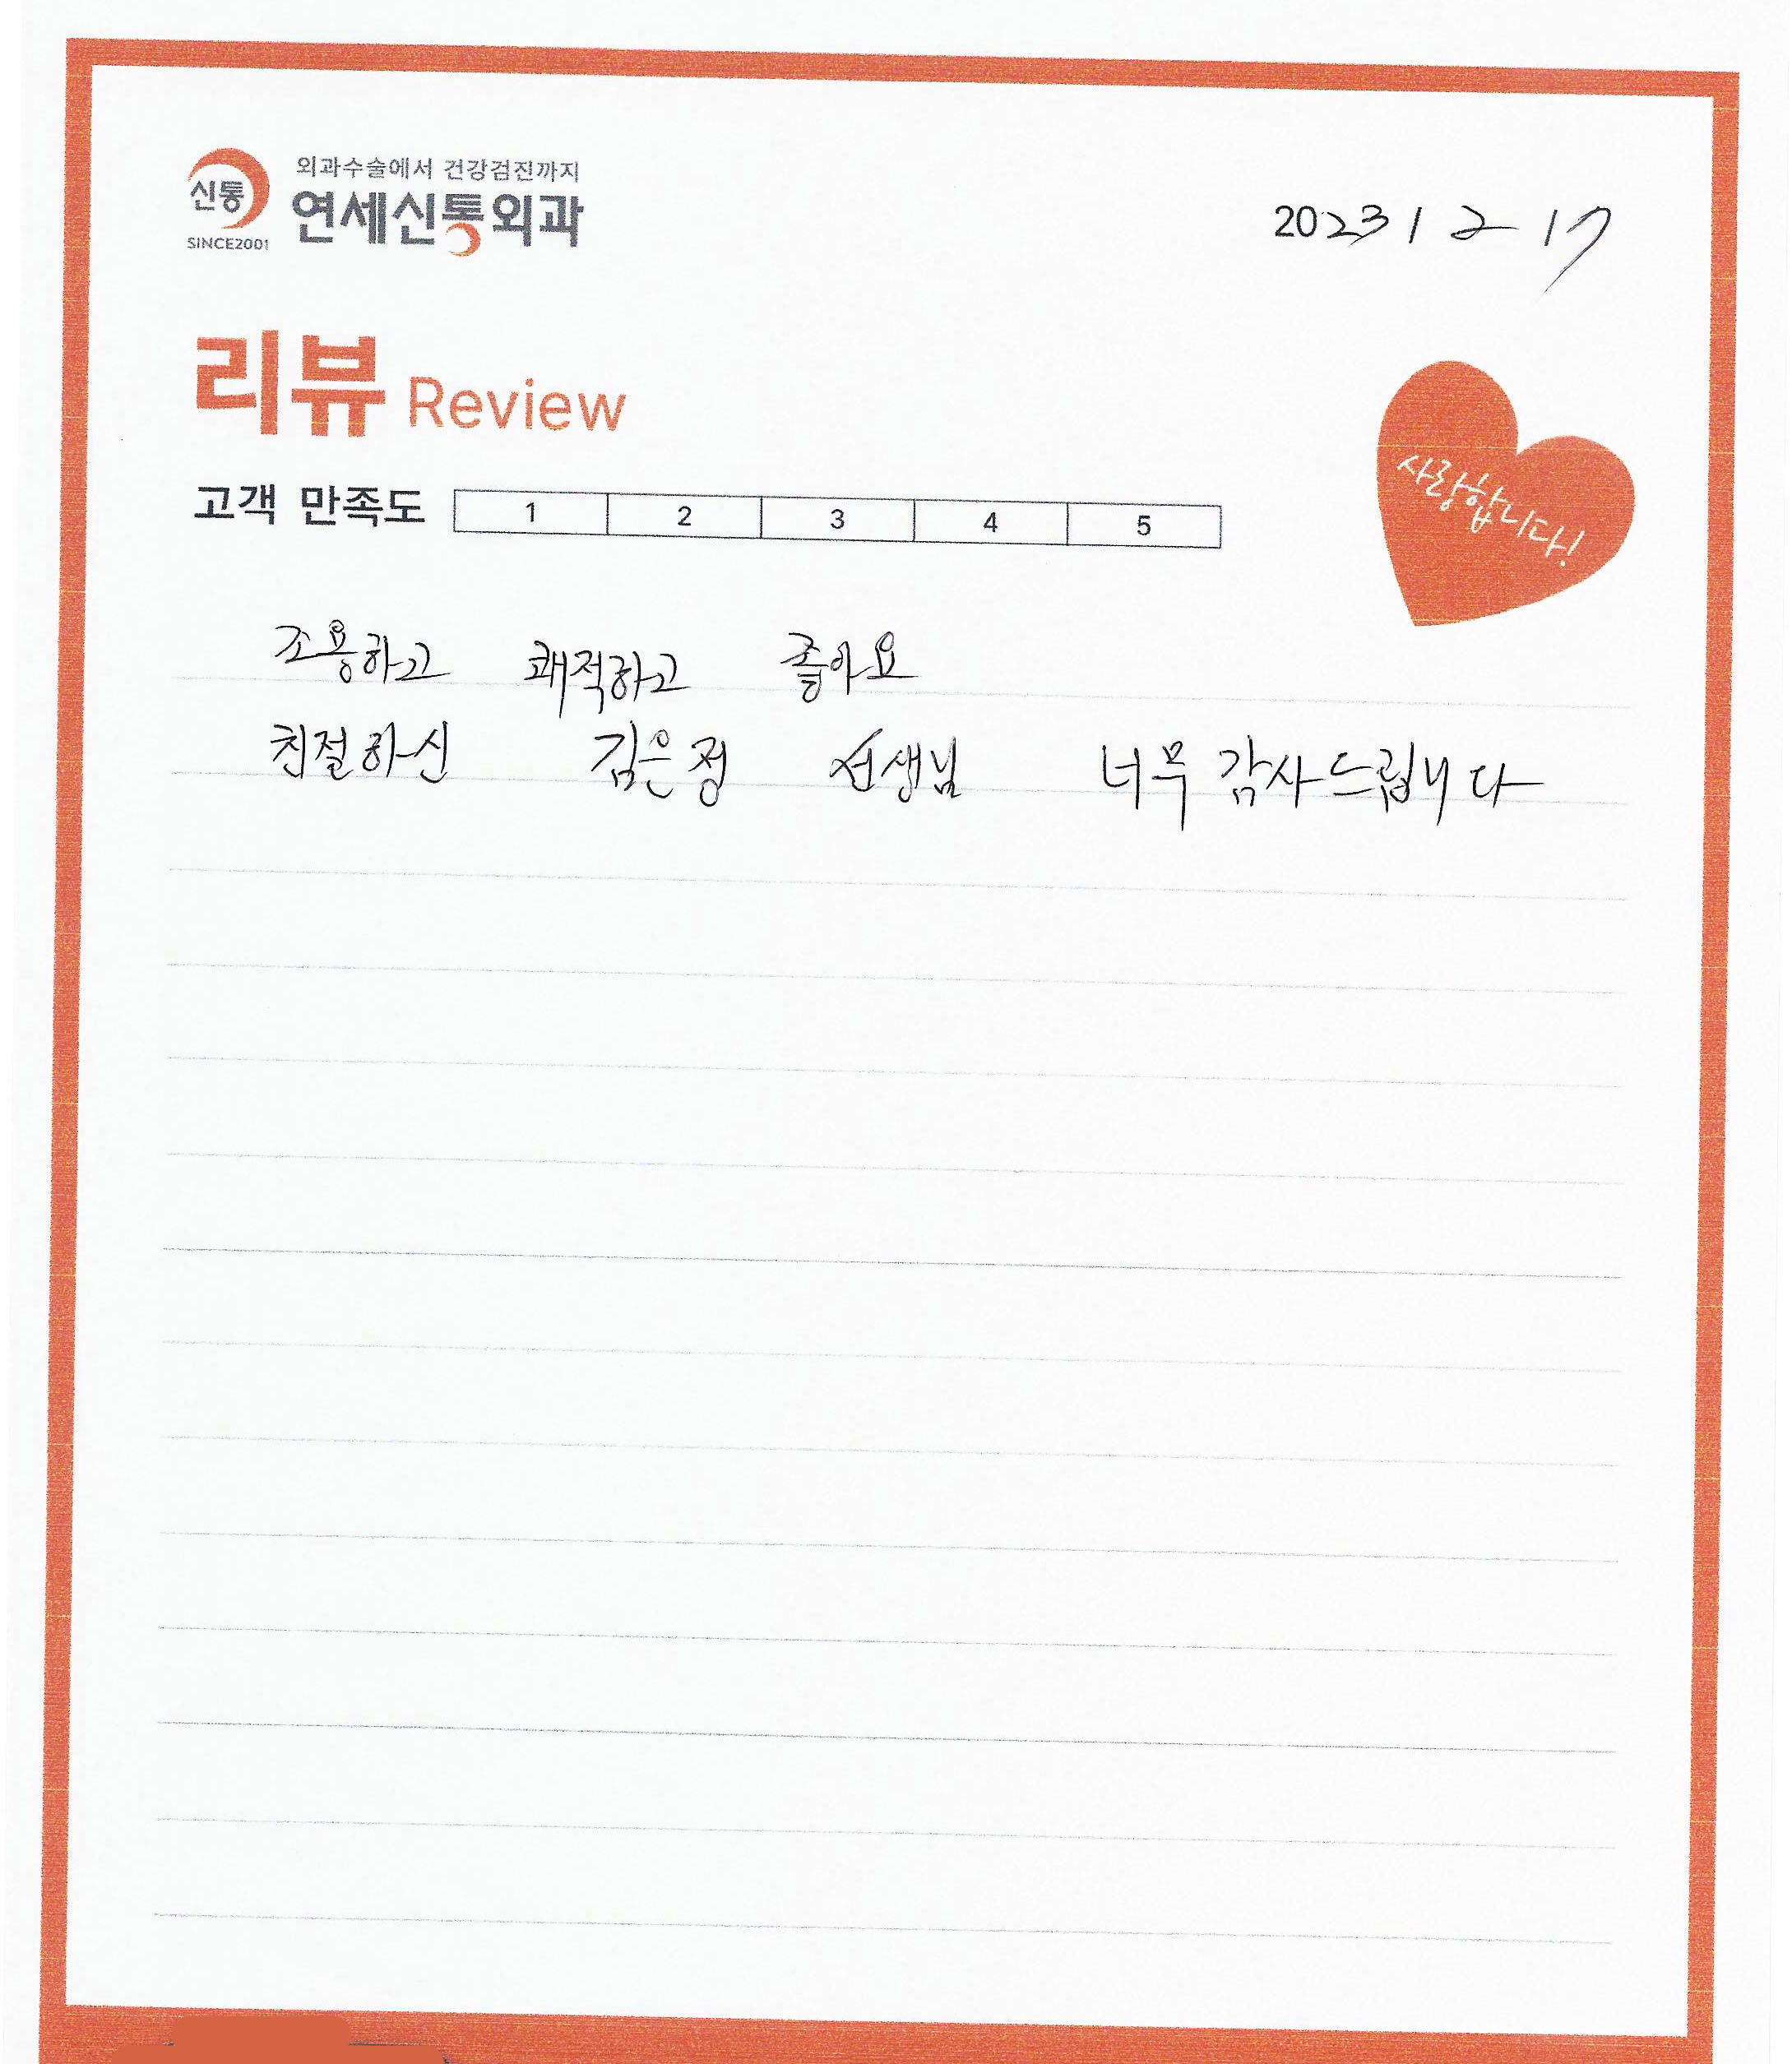 신통
SINCE2001
외과수술에서 건강검진까지
연세신통외과
2023 12 17
리뷰 Review
고객 만족도 1 2 3 4 5
사랑합니다!
조용하고 쾌적하고 좋아요
친절하신 김은정 선생님 너무 감사드립니다